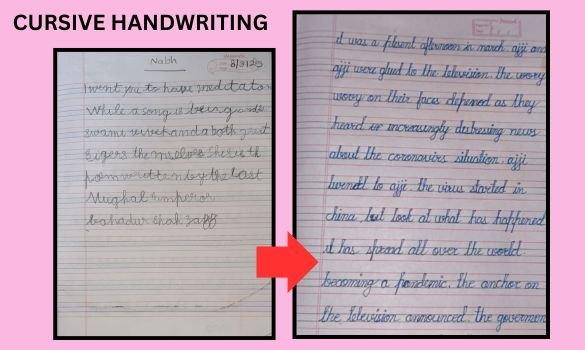 CURSIVE HANDWRITING
Nabh
8/3/25
I went you to have meditato
While a song is being
swami vivekhand a both great
themselves She is th
poem written by the last
Mughal Emperor
bahadur shah zaff
it was a plesent afternoon in march. ajji and
ajji were glued to the television. the worry
worry on their faces depened as they
heard is increasingly distressing news
about the coronavirs situation. ajji
turned to ajji. the virus started in
china, but look at what has happened
it has spread all over the world
becoming a pandemic. the anchor on
the television announced. the governmen